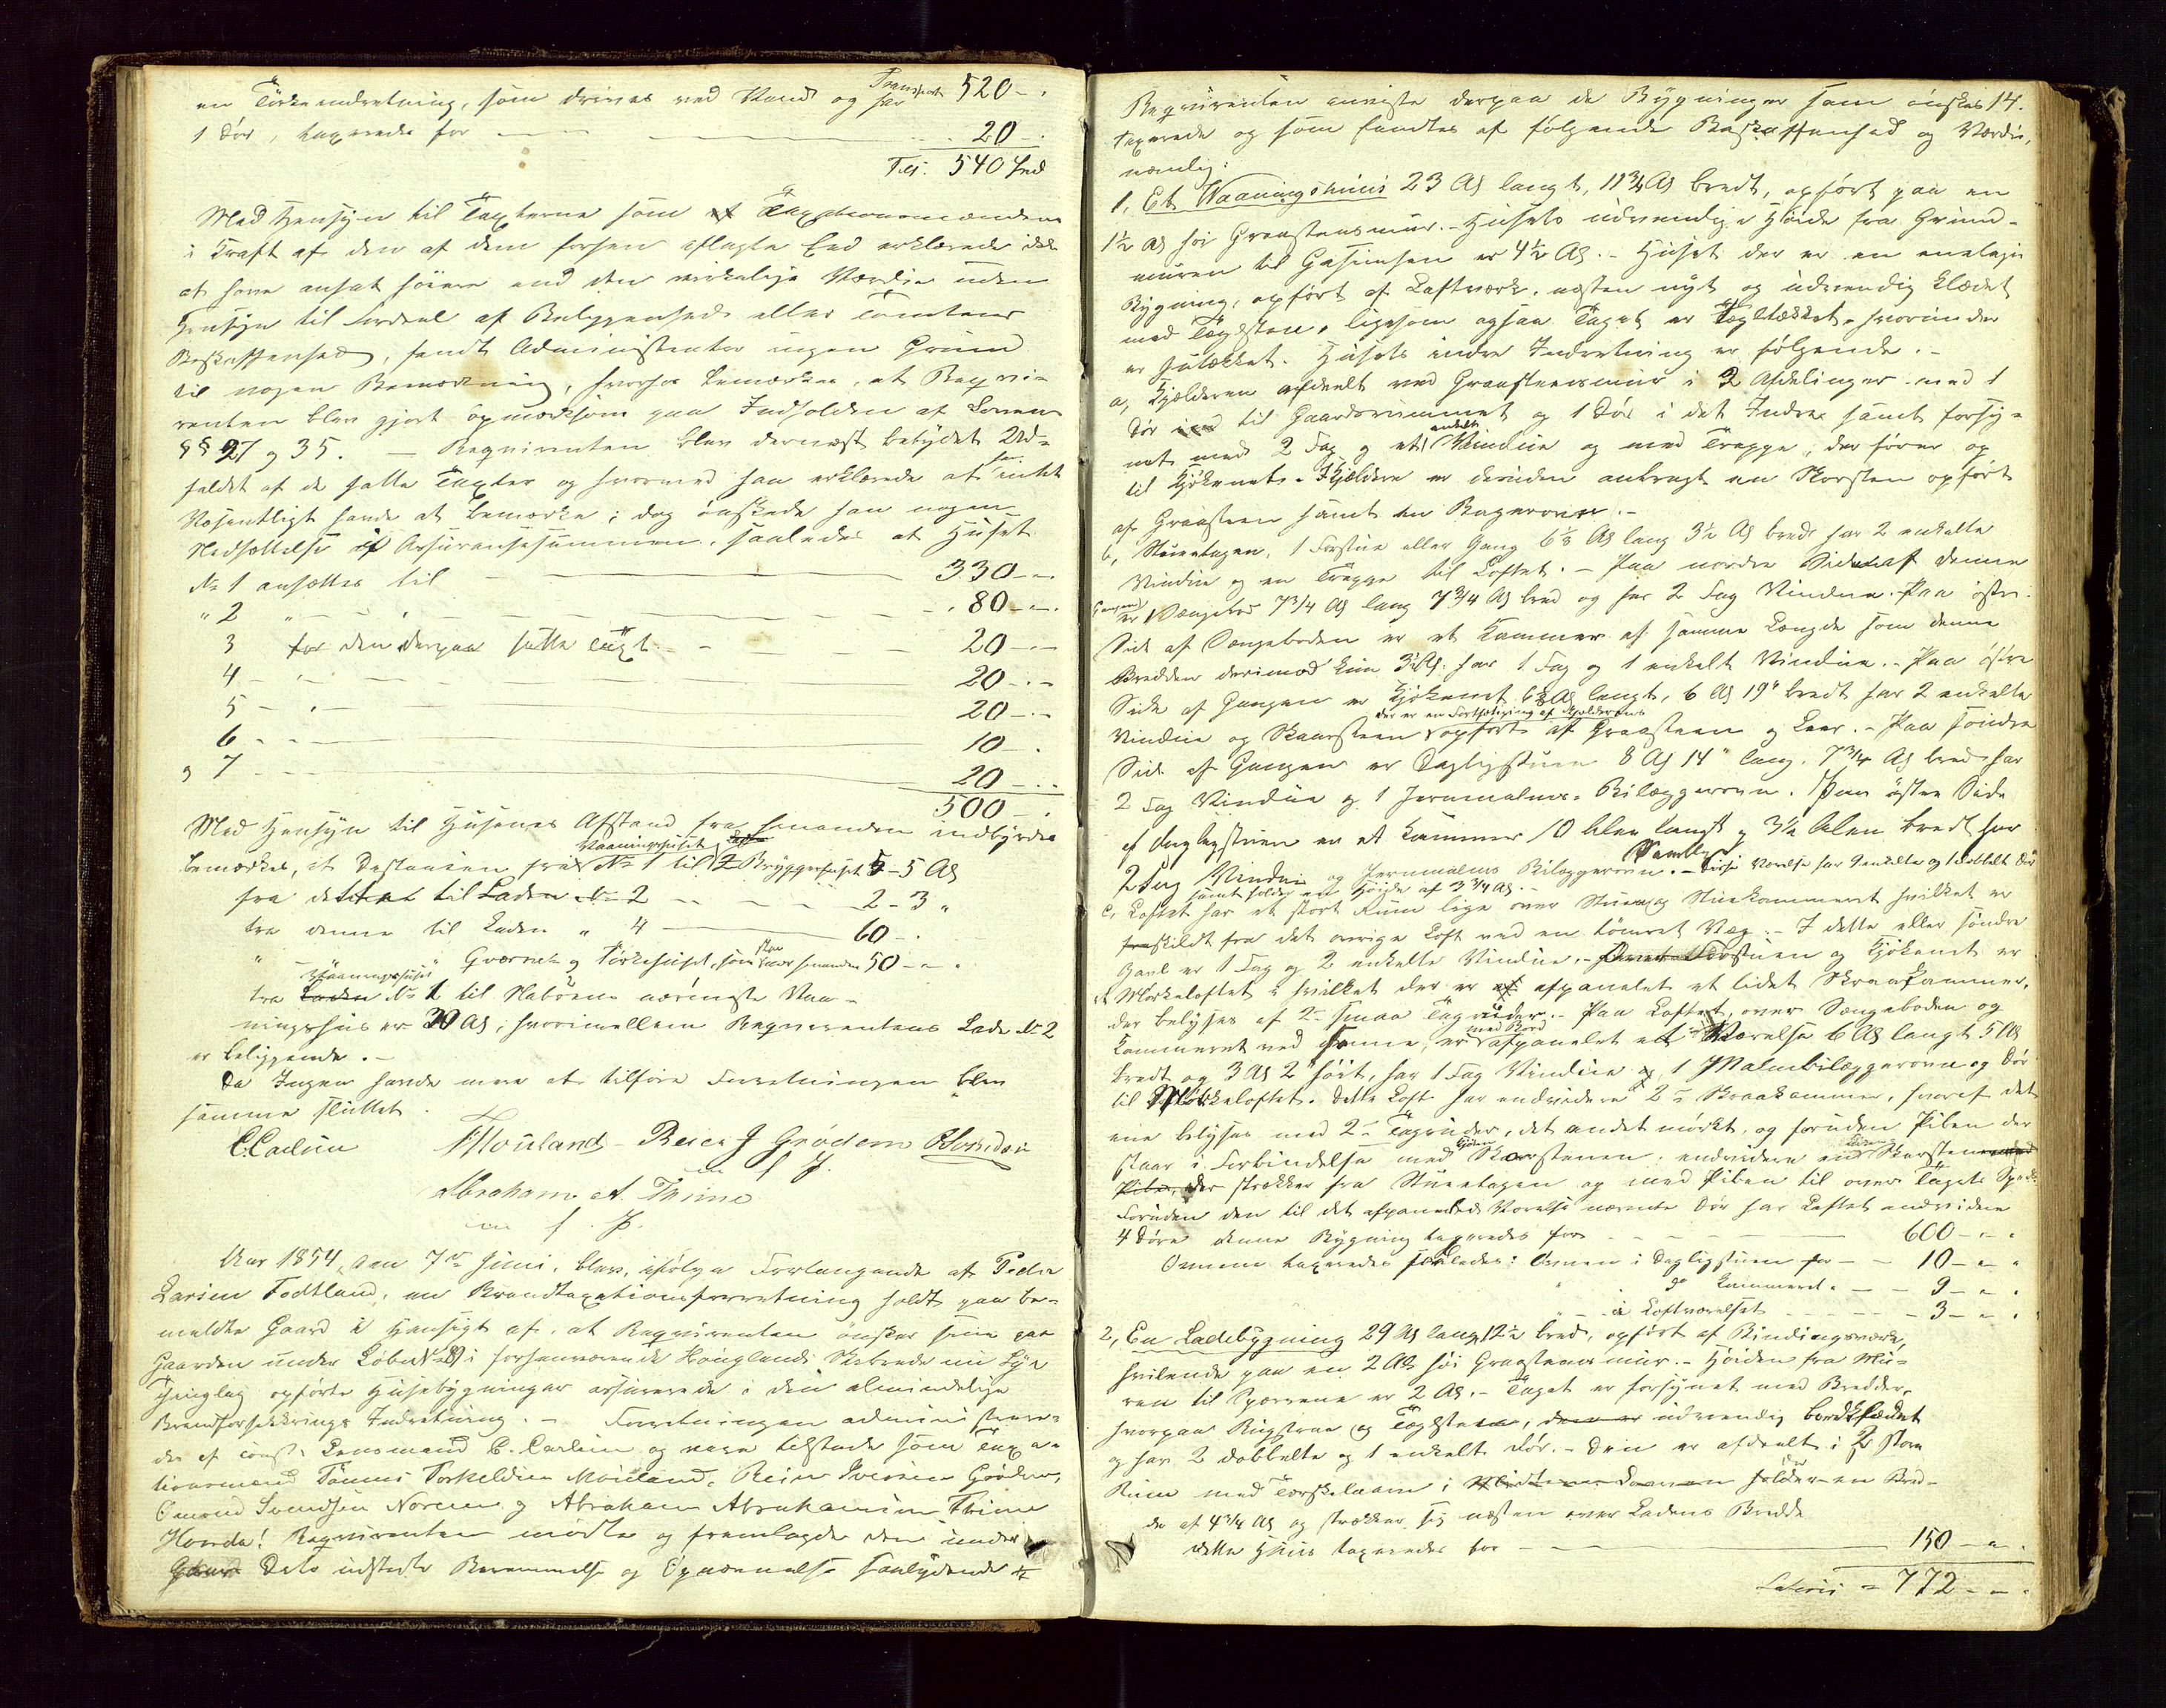 en Törkeindretning, som drives ved Vand og har Transport 520 - .
1 Dör, taxeredes for 20 - .
Til. 540 Spd
Med Hensyn til Taxterne som Taxationsmændene
i Kraft af den af dem forhen aflagte Eed erklærede ikke
at have ansat höiere end den virkelige Værdie uden
Hensyn til Fordeel af Beliggenhed eller Tomtens
Beskaffenhed, fandt Administrator ingen Grund
til nogen Bemærkning, hvorhos bemærkes, at Reqvi-
renten blev gjort opmærksom paa Indholden af Lovens
§§ 27 og 35. — Reqvirenten blev dernæst betydet Ud-
faldet af de satte Taxter og hvormed han erklærede at han intet
Væsentligt havde at bemærke; dog önskede han nogen
Nedsættelse i Assurancesummen, saaledes at Huset
No 1 ansættes til 330 - .
" 2 " 80 - .
3 for den derpaa satte Taxt 20 - .
4 - 20 - .
5 - 20 - .
6 - 10 - .
og 7 20 - .
500 - .
Med Hensyn til Husenes Afstand fra hinanden indbyrdes
bemærkes, at Distancen fra Vaaningshuset No 1 til Bryggerhuset 5 - 5 Al
fra dette til Laden No 2 2 - 3 "
fra denne til Laden " 4 60 - .
" " Qværnen og Törkehuset, som staae nær hinanden 50 - .
fra Vaaningshuset No 1 til Naboens nærmeste Vaa-
ningshus er 30 Al, hvorimellem Reqvirentens Lade No 2
er beliggende. -
Da Ingen havde mere at tilföre Forretningen blev
samme sluttet.
C. Carlsen T Mouland - Reier J Grödem O Svendsen
Abraham A. Thime
m f. P.
Aar 1854, den 7de Juni, blev, ifölge Forlangende af Peder
Larsen Todtland, en Brandtaxationsforretning holdt paa be-
meldte Gaard i Hensigt af, at Reqvirenten önsker sine paa
Gaarden under Löbe No i forhenværende Höuglands Skibrede nu Lye
Thinglag opförte Husebygninger assurerede i den almindelige
Brandforsikkrings Indretning. - Forretningen administrere-
des af const. Lensmand C. Carlsen og vare tilstede som Taxa-
tionsmænd Tönnes Torkeldsen Mouland, Reier Iversen Grödem,
Omund Svendsen Noreim og Abraham Abrahamsen Thime
Hvorda! Reqvirenten mödte og fremlagde den under
Dato udstedte Berammelse og Opnævnelse saalydende #
Reqvirenten anviste derpaa de Bygninger som önskes 14.
taxerede og som fandtes af fölgende Beskaffenhed og Værdi,
nemlig:
1, Et Vaaningshuus 23 Al langt, 11 3/4 Al bredt, opfört paa en
1 1/2 Al höi Graasteensmuur. - Husets udvendige Höide fra Grund-
muren til Gesimsen er 4 1/2 Al. - Huset der er en eenetages
Bygning, opfört af Laftværk, næsten nyt og udvendig klædet
med Teglsteen, ligesom ogsaa Taget er tegltækket, hvorunder
er sutækket. Husets indre Indretning er fölgende. -
a, Kjælderen afdeelt ved Graasteensmuur i 2 Afdelinger med 1
Dör ud til Gaardsrummet og 1 Dör i det Indre samt forsy-
net med 2 Fag og et enkelt Vindue og med Trappe, der förer op
til Kjökenet. I Kjælderen er desuden anbragt en Skorsten opfört
af Graasteen samt en Bagerovn. -
b, Stueetagen, 1 Forstue eller Gang 6 1/8 Al lang 3 1/2 Al bred har 2 enkelte
Vindue og en Trappe til Loftet. - Paa nordre Side af denne
Gangen er Sængebod 7 3/4 Al lang 7 3/4 Al bred og har 2 Fag Vindue. Paa östre
Side af Sængeboden er et Kammer af samme Længde som denne
Bredden derimod kun 3 1/2 Al. har 1 Fag og 1 enkelt Vindue. - Paa östre
Side af Gangen er Kjökenet 6 Al langt, 6 Al 19" bredt har 2 enkelte
Vindue og Skorsteen der er en Fortsættning af Kjælderens opfört af Graasteen og Leer. - Paa söndre
Side af Gangen er Dagligstuen 8 Al 14" lang, 7 3/4 Al bred har
2 Fag Vindue og 1 Jernmalms-Bilæggerovn. Paa östre Side
af Dagligstuen er et Kammer 10 Alen langt og 3 1/2 Alen bredt har
2 Fag Vindue og Jernmalms Bilæggerovn. - Samtlige disse Værelse har 9 enkelte og 1 dobbelt Dör
samt holder en Höide af 3 3/4 Al. -
c, Loftet har et stort Rum lige over Stuen og Stuekammeret hvilket er
skildt fra det övrige Loft ved en tömret Væg. - I dette eller söndre
Gavl er 1 Fag og 2 enkelte Vindue. - Forstuen og Kjökenet er
et Mörkeloftet i hvilket der er afpanelet et lidet Skraakammer,
der belyses af 2de smaa Tagruder. - Paa Loftet, over Sængeboden og
Kammeret ved samme, er med Bord afpanelet et Værelse 6 Al langt 5 Al
bredt og 3 Al 2" höit, har 1 Fag Vindue og 1 Malmbilæggerovn og Dör
til Mörkeloftet. Dette Loft har endvidere 2de Skraakammer, hvoraf det
ene belyses med 2de Tagruder, det andet mörkt, og foruden Piben der
staar i Forbindelse med Skorstenen, endvidere en Skorsten
der strækker fra Stueetagen og med Piben til over Tagets Spids.
Foruden den til det afpanelede Værelse nævnte Dör har Loftet endvidere
4 Döre denne Bygning taxeredes for 600 - .
Ovnene taxeredes saaledes: Ovnen i Dagligstuen 10 - .
" do Kammeret 9 - .
" - i Loftværelset 3 - .
2, En Ladebygning 29 Al lang 12 1/2 bred, opfört af Bindingsværk,
hvilende paa en 2 Al höi Graasteensmuur. - Höiden fra Mu-
ren til Sperrene er 2 Al. - Taget er forsynet med Bredder,
hvorpaa Rugstraa og Teglsteen, udvendig bordklædet
og har 2 dobbelte og 1 enkelt Dör. - Den er afdeelt i 2 store
Rum med Tærskeloven i holder en Bred-
de af 4 3/4 Al og strækker sig næsten over Ladens Bredde
dette Huus taxeredes for 150 - .
Lateris = 772 - .